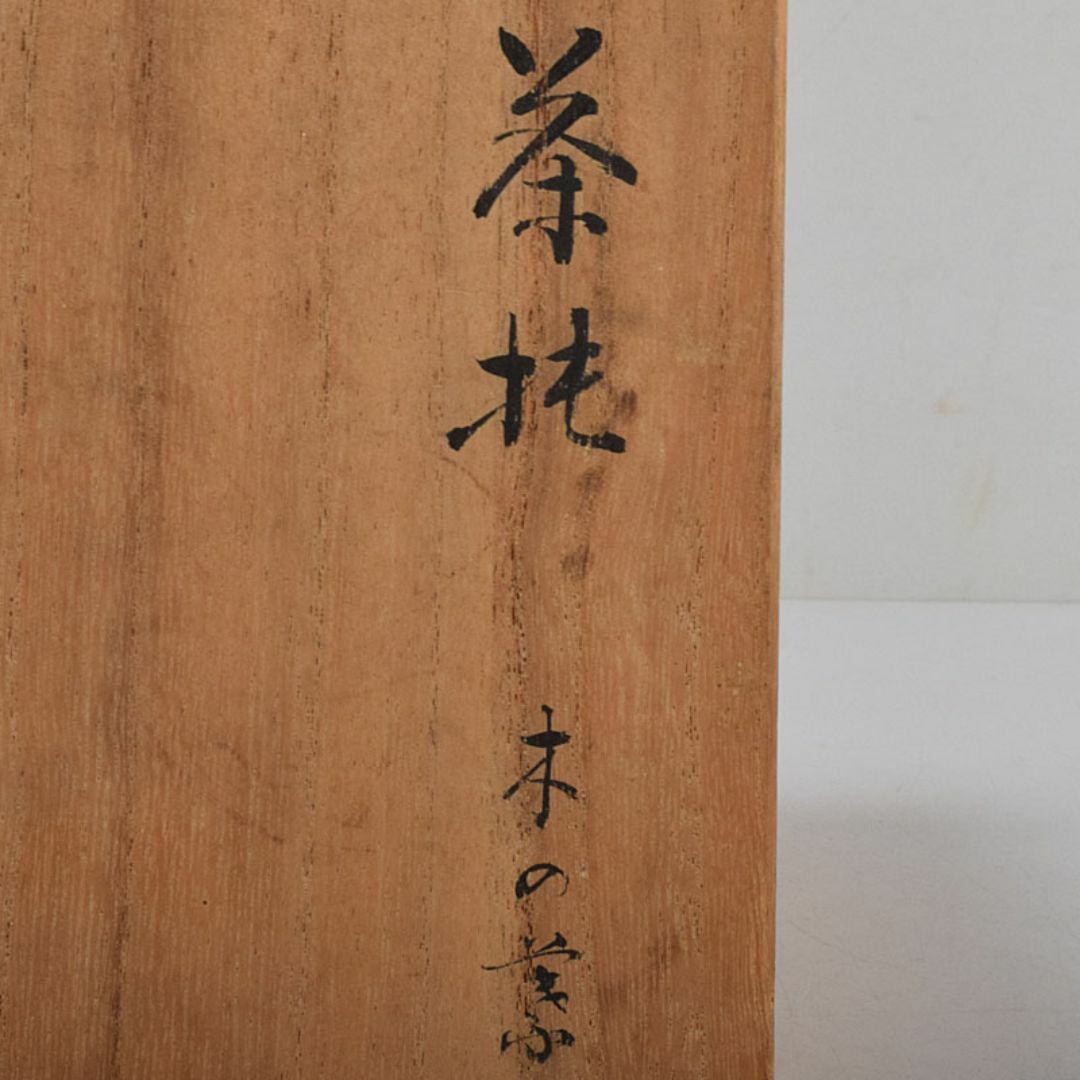 茶托
木の葉